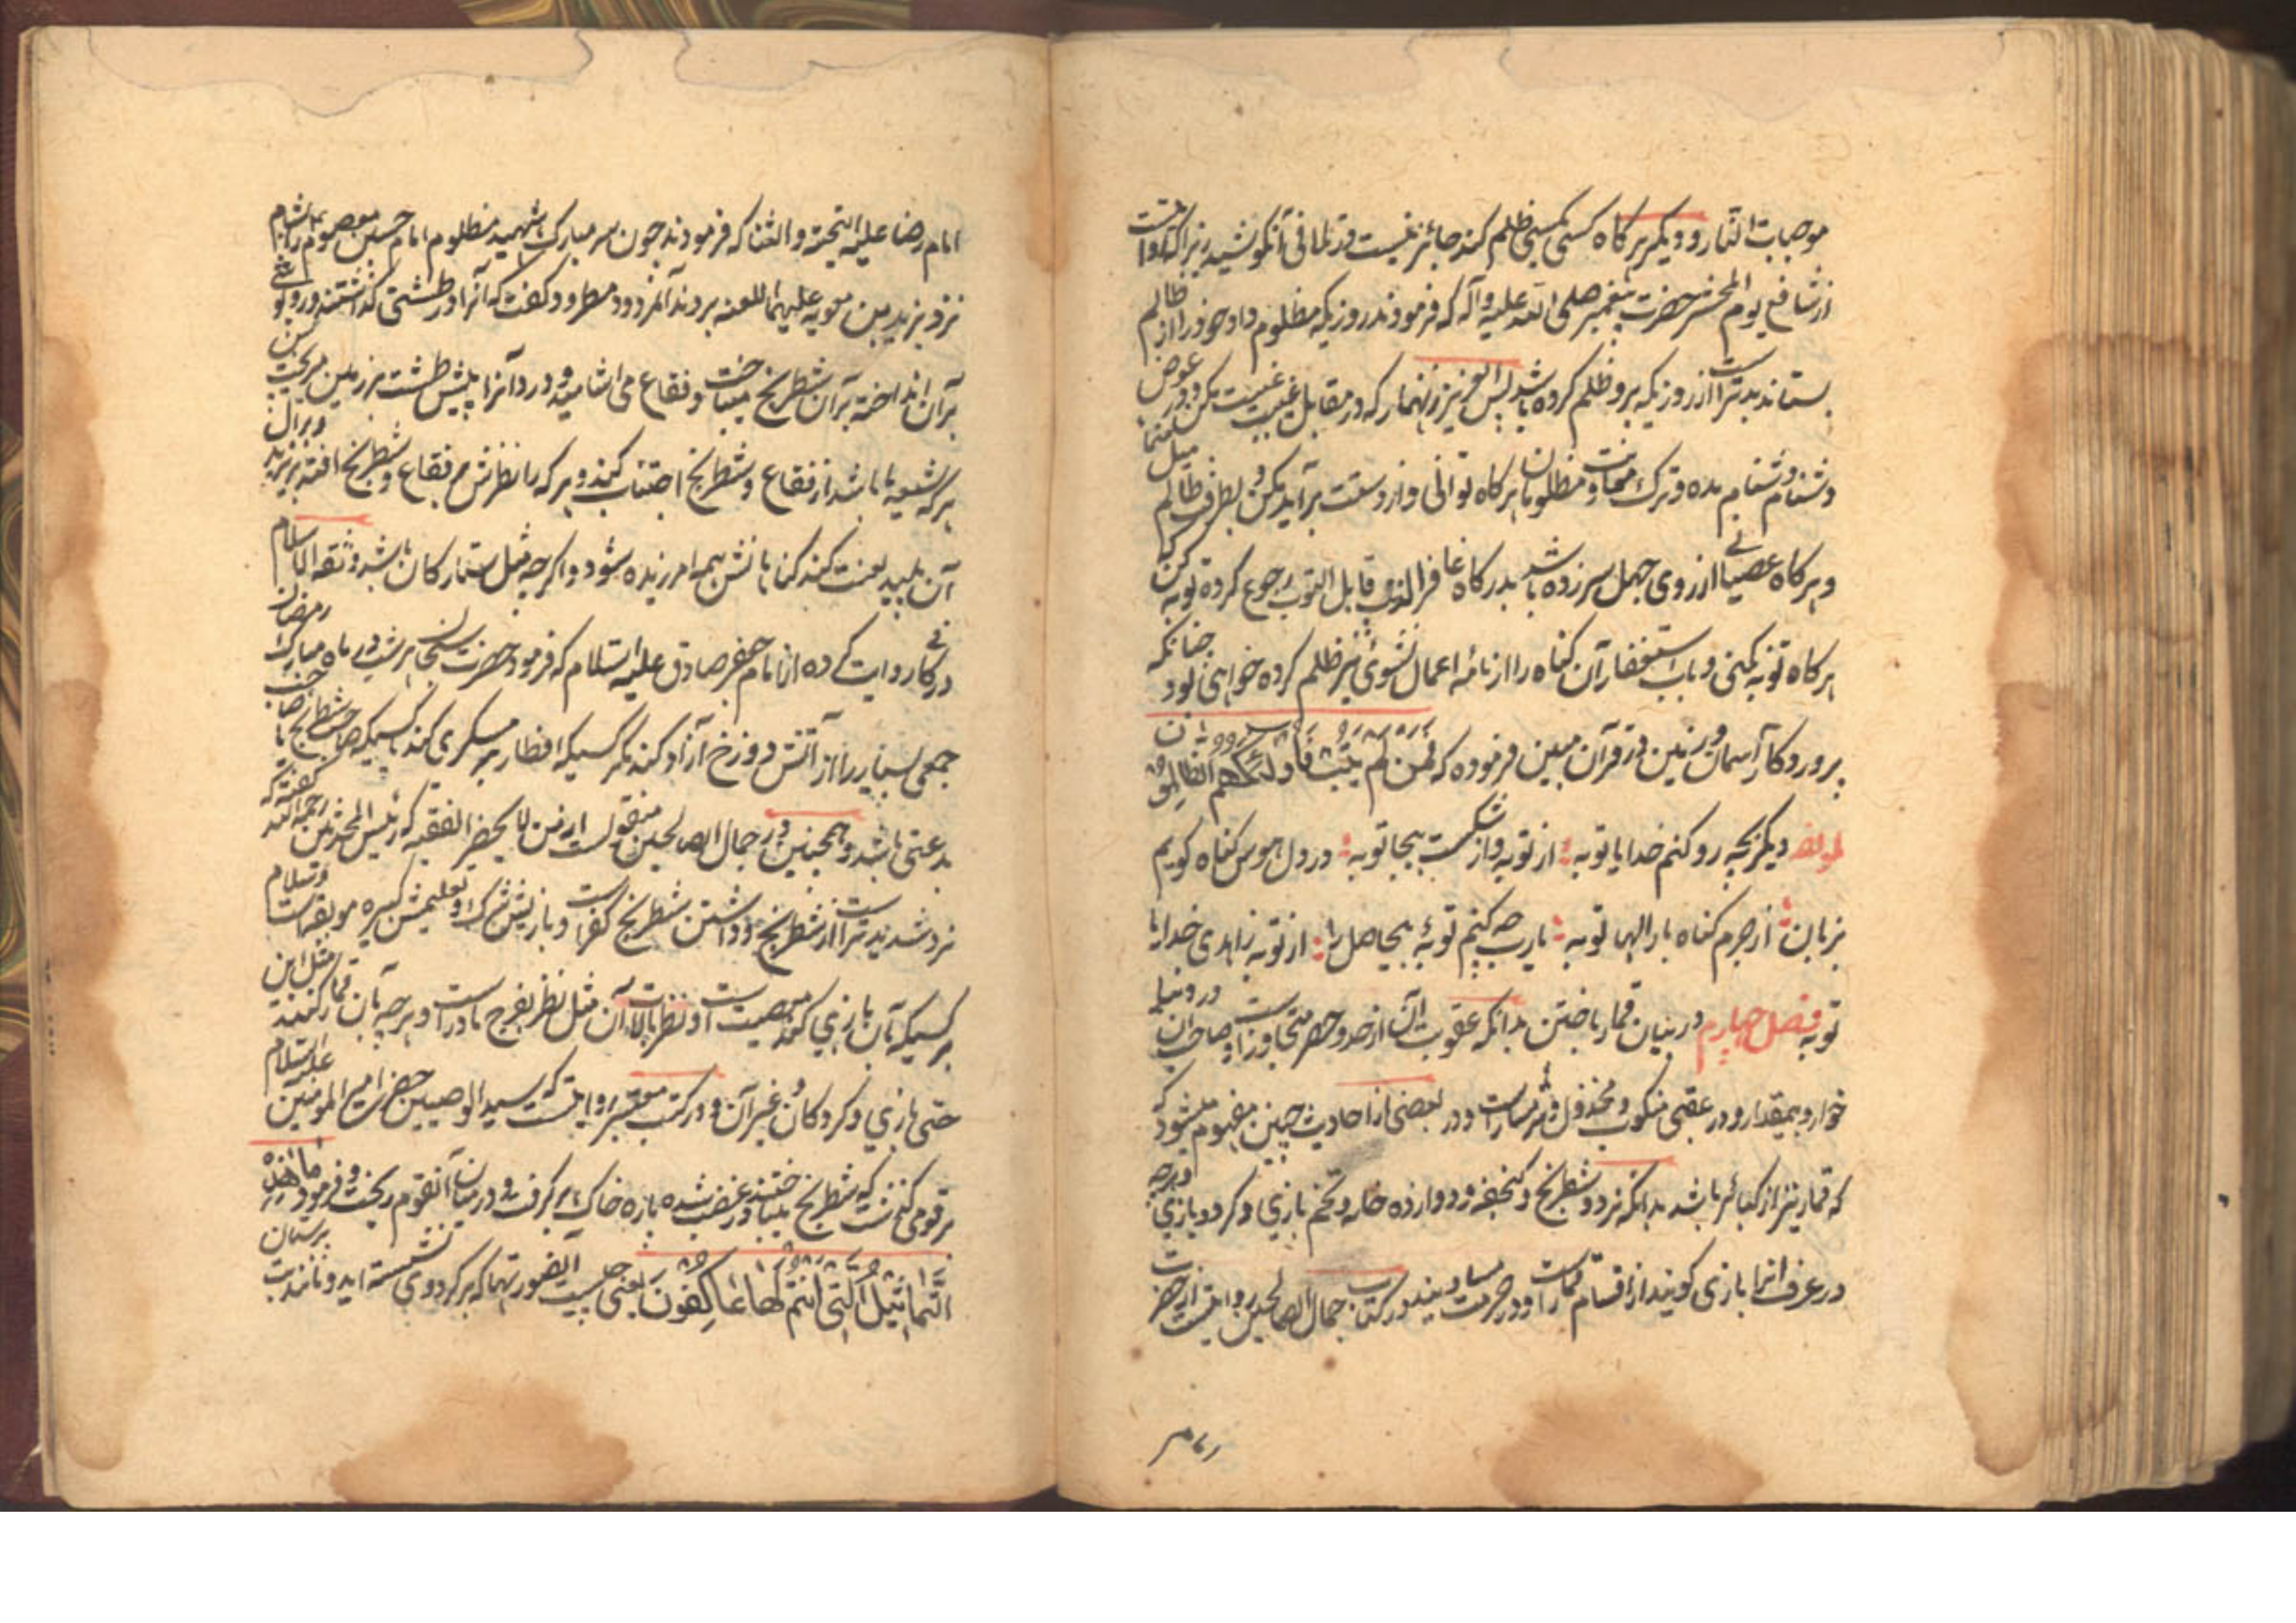 موجبات النار و دیگر هر کاه کسی بکسی ظلم کند جائز نیست در تلافی آن کوشید زیرا که روایتست
از شافع یوم المحشر حضرت پیغمبر صلی الله علیه و آله که فرمودند روزیکه مظلوم داد خود را از ظالم
بستاند بدتر است از روزیکه برو ظلم کرده باشد پس العزیز زنهار که در مقابل غیبت غیبت مکن و در عوض
دشنام دشنام مده و ترک معاونت مظلومان هر کاه توانی و از دستت برآید مکن و بطرف ظالم میل منما
و هر کاه عصیانی از روی جهل سر زده باشد بدرکاه غافر الذنب قابل التوب رجوع کرده توبه کن که
هر کاه توبه نکنی و باب استغفار آن کناه را از نامه اعمال نشوئی نیز ظلم کرده خواهی بود چنانکه
پروردکار آسمان و زمین در قرآن مبین فرموده که فمن لم یتب فاولئک هم الظالمون
لمولفه دیکر بچه رو کنم خدایا توبه از توبه و از شکست بیجا توبه در دل هوس کناه کویم
بزبان از جرم کناه بار الها توبه یا رب چه کنم توبهٔ بیحاصل را از توبه زاهدی خدایا
توبه فصل چهارم در بیان قمار باختن بدانکه عقوبت آن از حد و حصر متجاوز است و صاحب آن در دنیا
خوار و بیمقدار و در عقبی منکوب و مخذول و شرمسار است و در بعضی از احادیث چنین مفهوم میشود که
که قمار نیز از کبائر باشد بدانکه نرد و شطرنج و کنجفه و دوازده خانه و تخم بازی و کردو بازی و هر چه
در عرف آنرا بازی کویند از اقسام قمار است و در حرمت مساویند و در کتاب جمال الصالحین روایتست از حضرت
امام رضا علیه التحیة و الثنا که فرمودند چون سر مبارک شهید مظلوم امام حسین معصوم را بشام
نزد یزید بن معویه علیهما اللعنه بردند آن مردود مطرود کفت که آنرا در طشتی کذاشتند و روپوشی
بر آن انداخته بر آن شطرنج میباخت و فقاع می اشامید و درد آنرا پیش طشت بر زمین میریخت پس
هر که شیعه ما باشد از فقاع و شطرنج اجتناب کند و هر که را نظرش بر فقاع و شطرنج افتد بر یزید و بر آل
آن پلید لعنت کند کناهانش همه امرزیده شود و اکر چه مثل ستارکان باشد و ثقة الاسلام
در کافی روایت کرده از امام جعفر صادق علیه السلام که فرمود حضرت سبحان هر شب در ماه مبارک رمضان
جمعی بسیار را از آتش دوزخ آزاد کند مکر کسیکه افطار بمسکری کند یا کسیکه صاحب شطرنج یا صاحب
بدعتی باشد و همچنین در جمال الصالحین منقولست از من لا یحضره الفقیه که رئیس المحدثین رحمه الله کفته که
نرد شدیدتر است از شطرنج و داشتن شطرنج کفر است و بازیش شرک و تعلیمش کبیره موبقه است و سلام
بر کسیکه بآن بازی کند معصیت است و نظر بالات آن مثل نظر بفرج مادر است و هر چه بآن قمار کنند مثل این
حتی بازی و کردکان و غیر آن و در کتب معتبره روایتست که سید الوصیین حضرت امیر المومنین علیه السلام
بر قومی کذشت که شطرنج میباختند در غضب شده پاره خاک بر کرفت و در میان آنقوم ریخت و فرمود ما هذه
التماثیل التی انتم لها عاکفون یعنی چیست آنصورتها که بر کرد وی نشسته اید و مانند بت پرستان